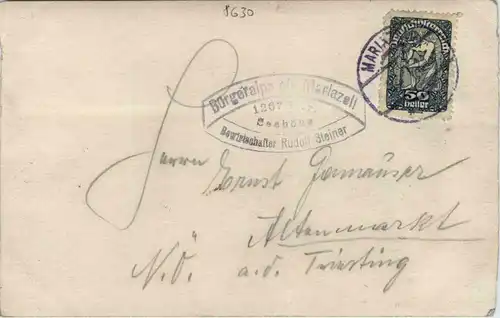 8630
MARIA
50
heller
Bürgeralpe bei Mariazell
1267
Seehöhe
Bewirtschafter Rudolf Steiner
Herrn Ernst
Altenmarkt
N.Ö. a.d. Triesting